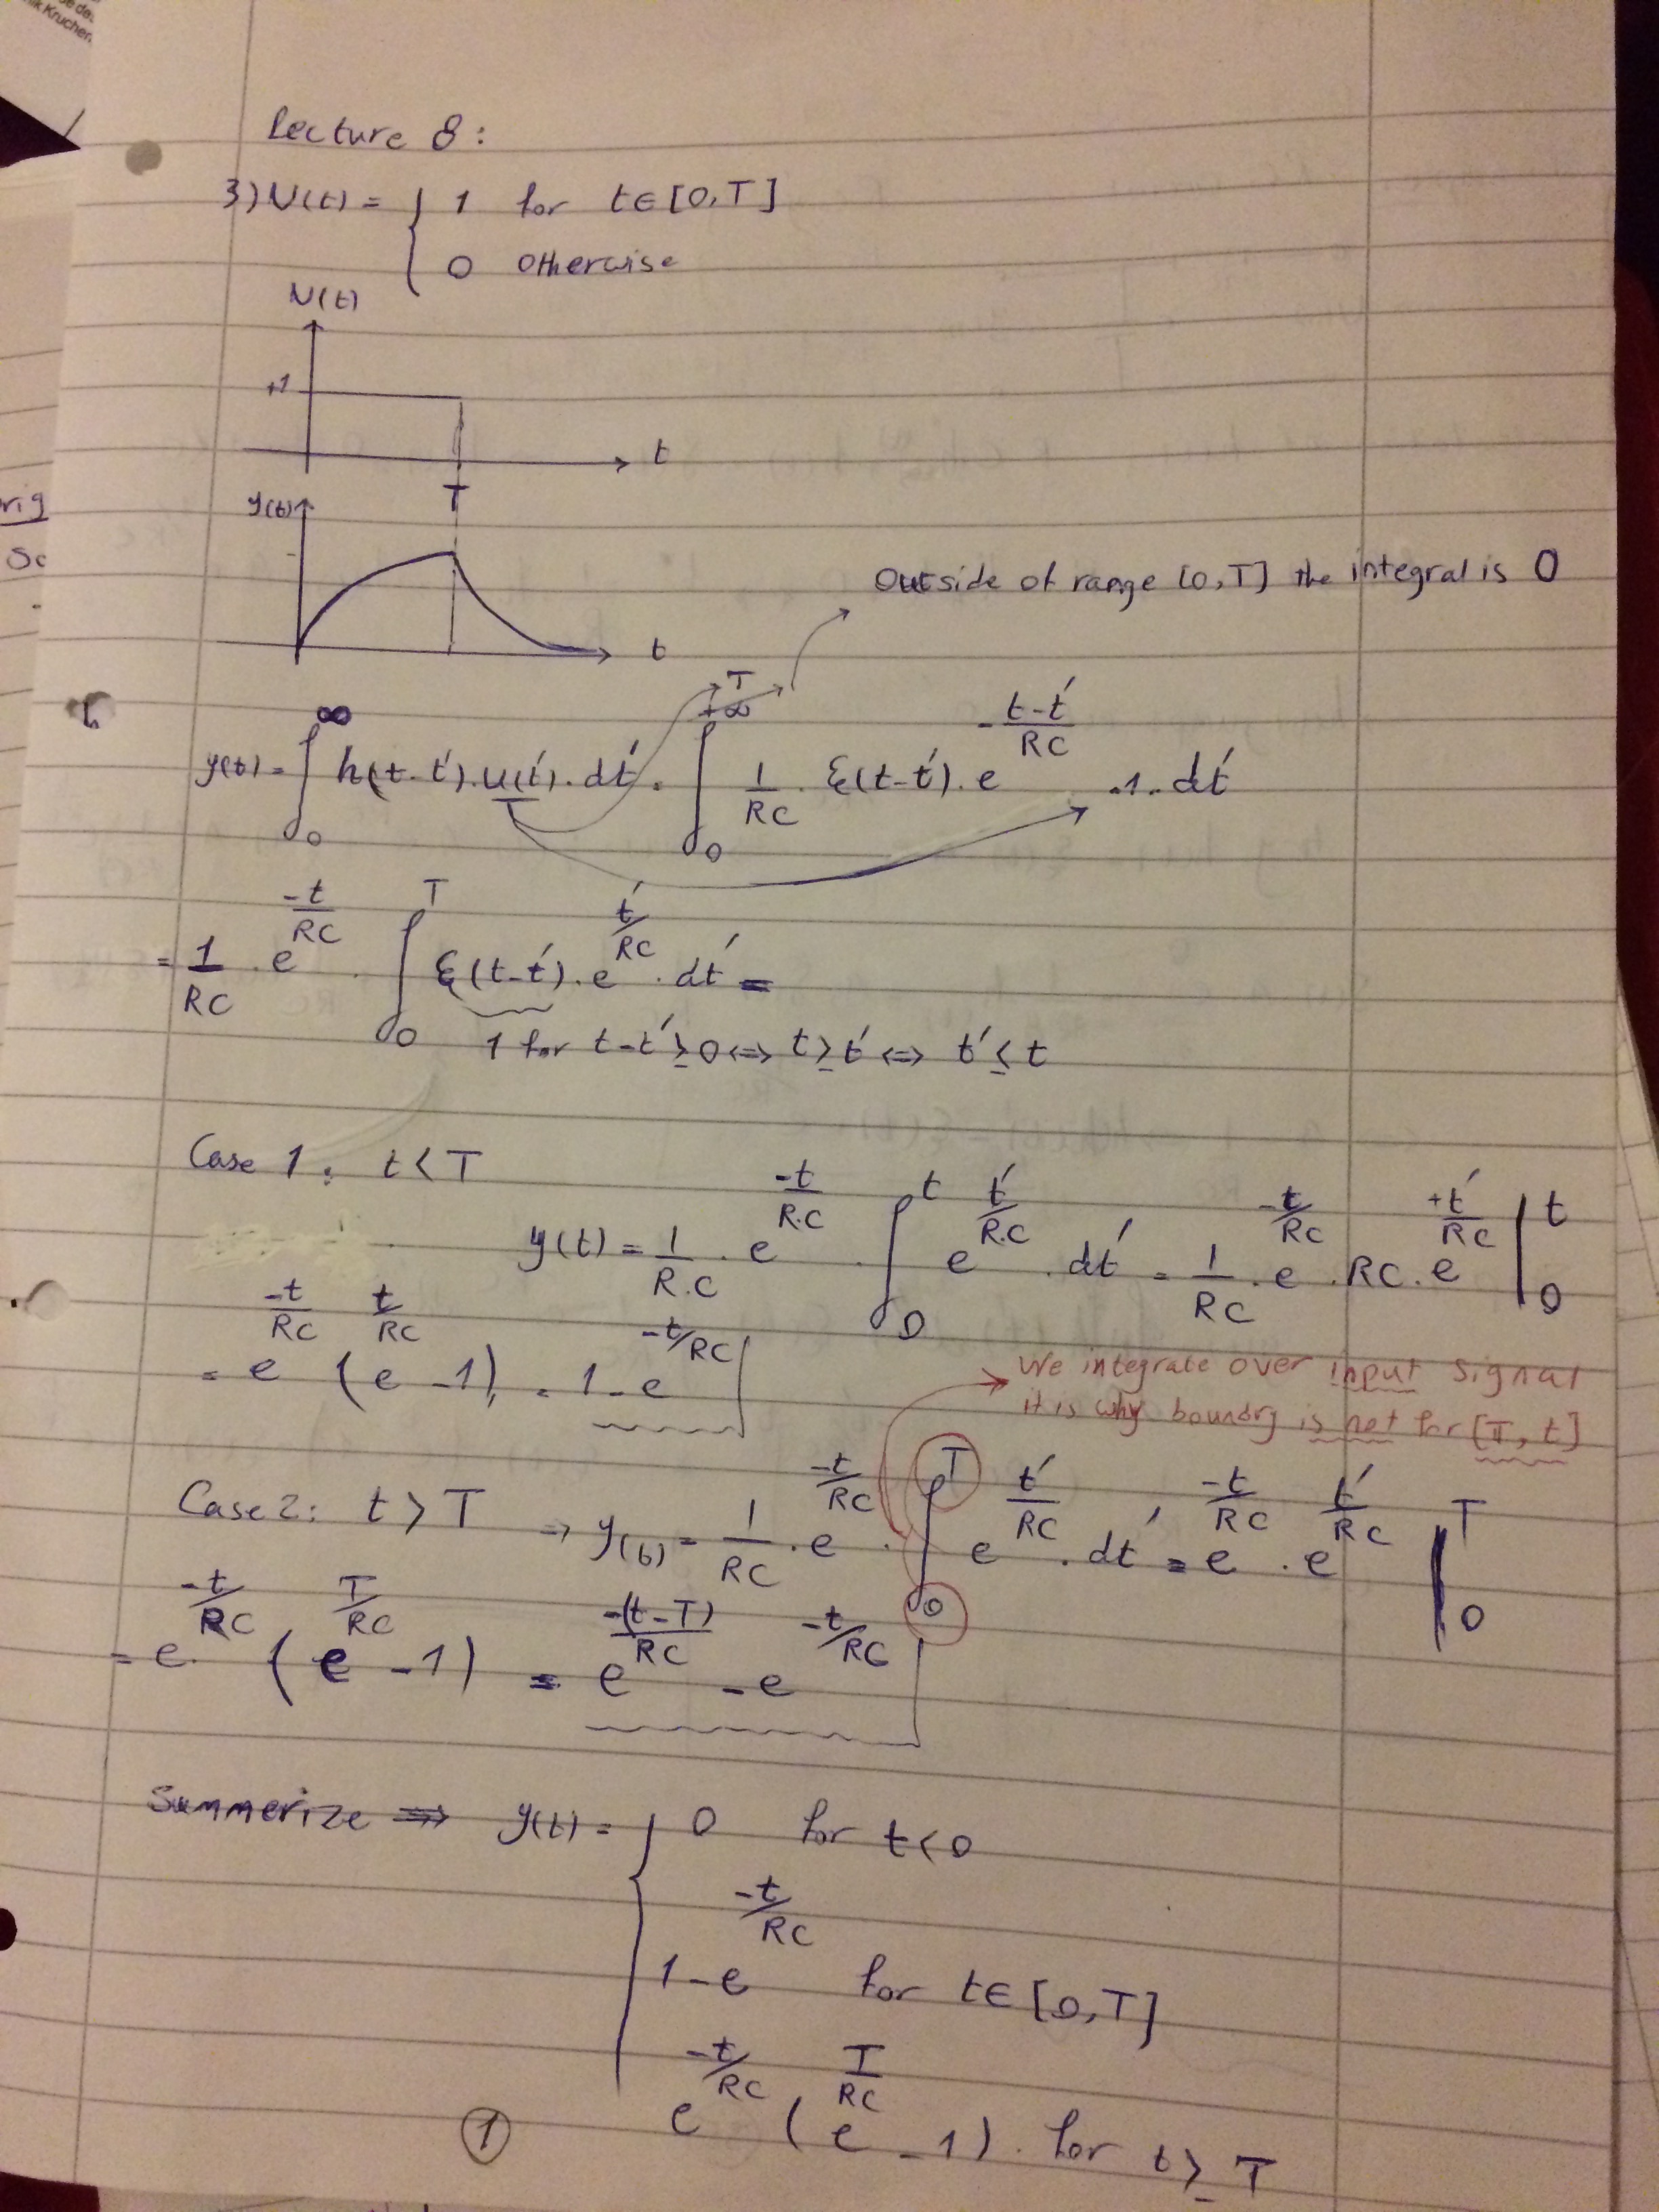 ik Kruchen
Lecture 8:
3) U(t) = { 1 for t∈[0,T]
0 otherwise
U(t)
+1
t
T
y(t)
t
rig
Sc
Outside of range [0,T] the integral is 0
y(t) = ∫_0^∞ h(t-t').u(t').dt' = ∫_0^{T +∞} 1/RC . ε(t-t'). e^{-(t-t')/RC} .1. dt'
= 1/RC . e^{-t/RC} . ∫_0^T ε(t-t'). e^{t'/RC} . dt' =
1 for t-t' ≥ 0 <=> t ≥ t' <=> t' ≤ t
Case 1: t < T
y(t) = 1/R.C . e^{-t/R.C} . ∫_0^t e^{t'/R.C} . dt' = 1/RC . e^{-t/RC} . RC . e^{+t'/RC} |_0^t
= e^{-t/RC} (e^{t/RC} - 1) = 1 - e^{-t/RC}
We integrate over input signal
it is why boundry is not for [T, t]
Case 2: t > T => y(t) = 1/RC . e^{-t/RC} . ∫_0^T e^{t'/RC} . dt' = e^{-t/RC} . e^{t'/RC} |_0^T
= e^{-t/RC} (e^{T/RC} - 1) = e^{-(t-T)/RC} - e^{-t/RC}
Summerize => y(t) = { 0 for t < 0
1 - e^{-t/RC} for t∈[0,T]
e^{-t/RC} (e^{T/RC} - 1). for t ≥ T
1